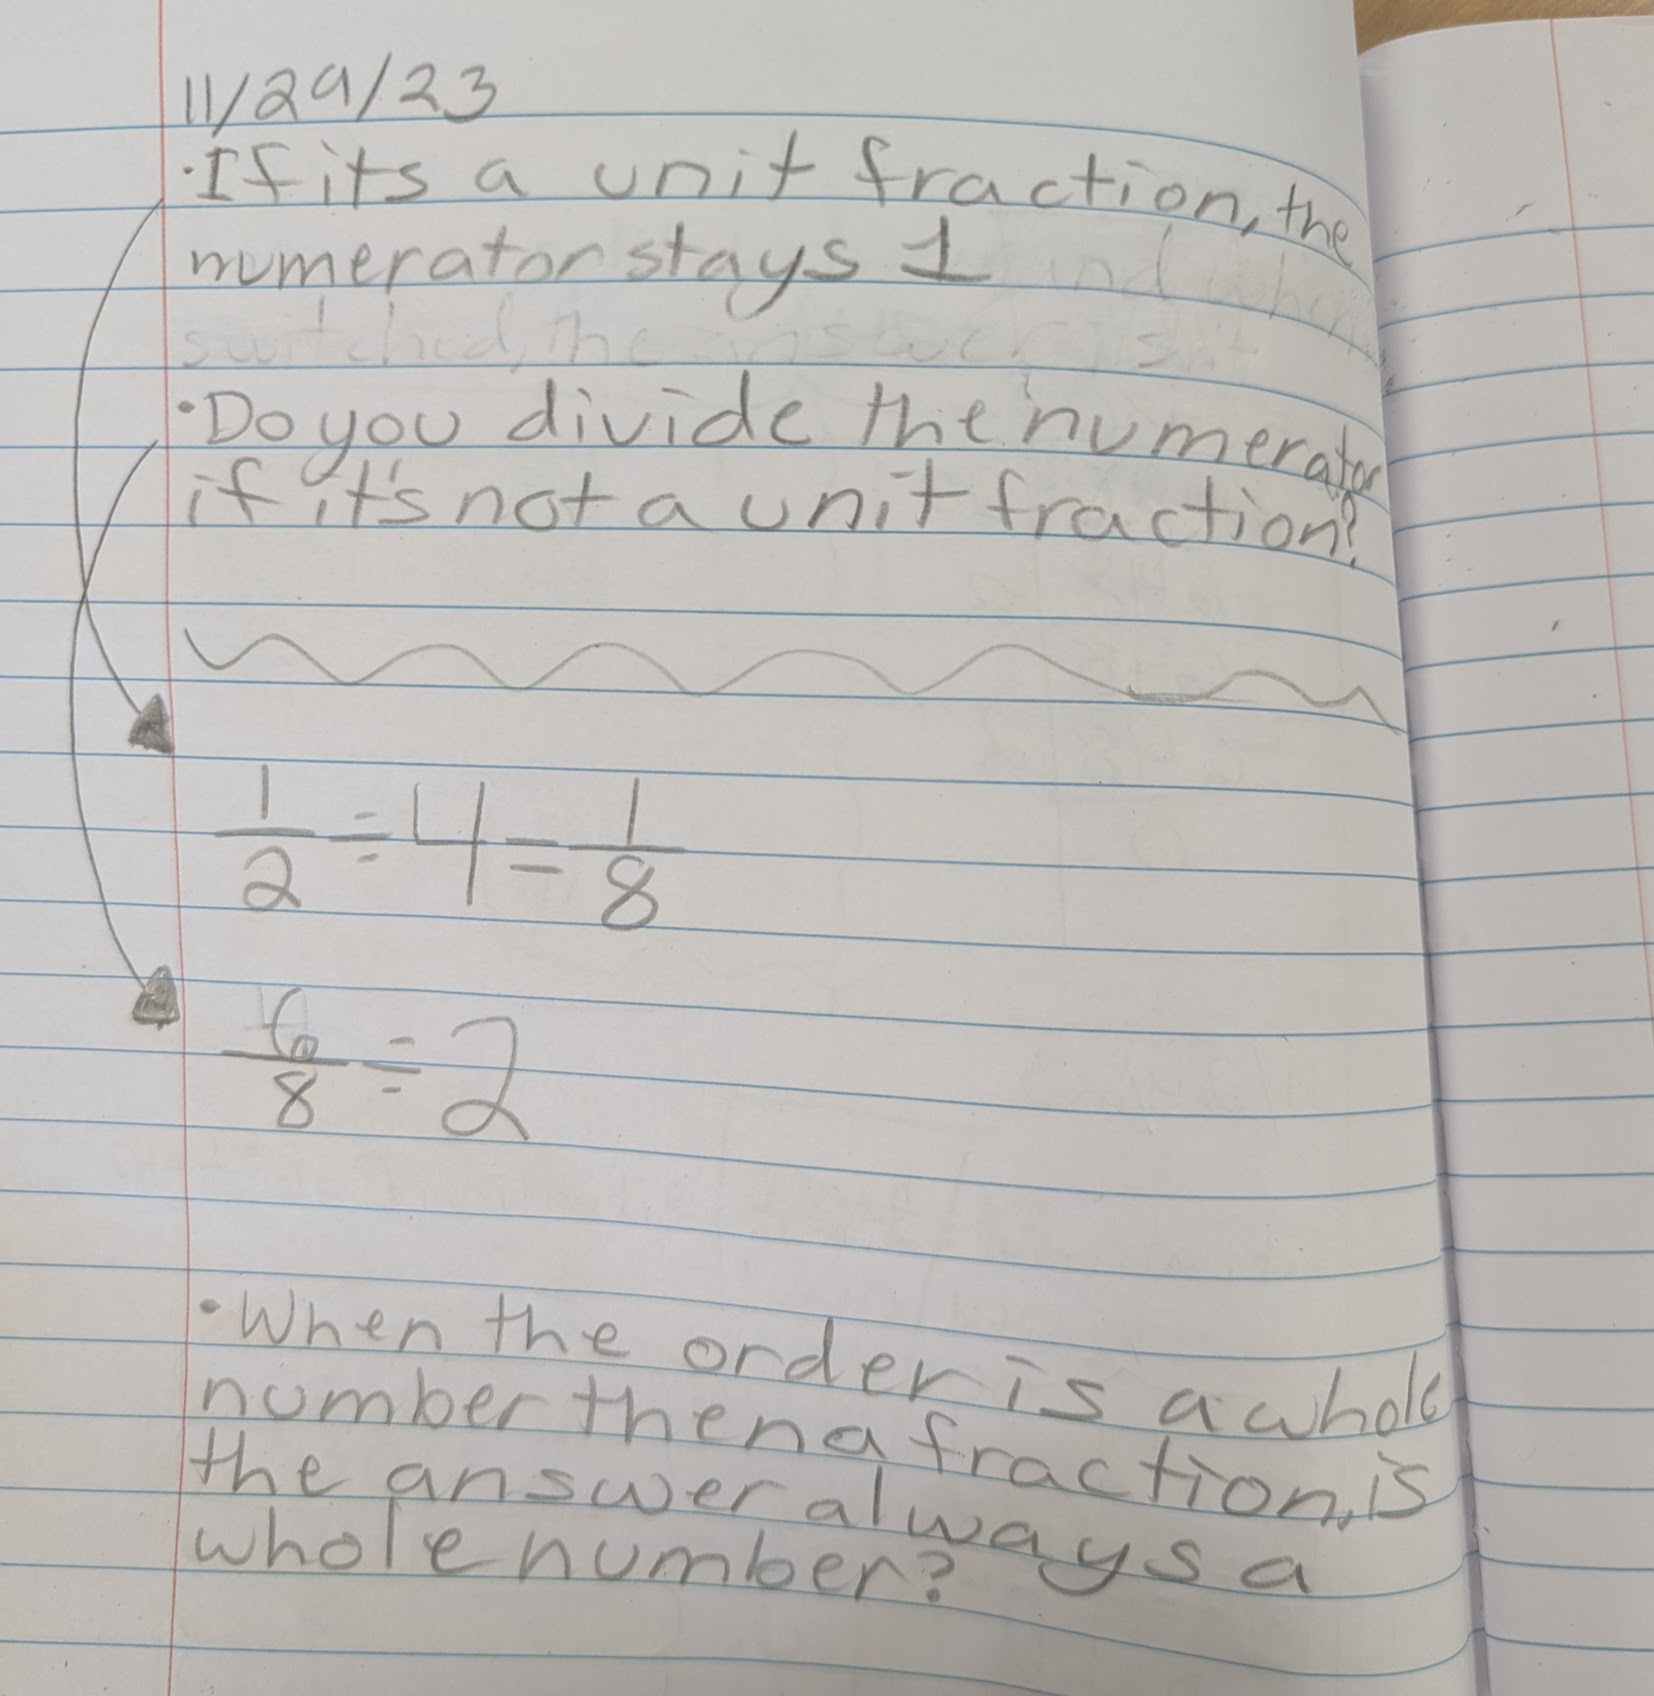 11/29/23
·If its a unit fraction, the
numerator stays 1 and when
switched, the answer is
·Do you divide the numerator
if it's not a unit fraction?
1/2 ÷ 4 = 1/8
6/8 ÷ 2
·When the order is a whole
number then a fraction, is
the answer always a
whole number?